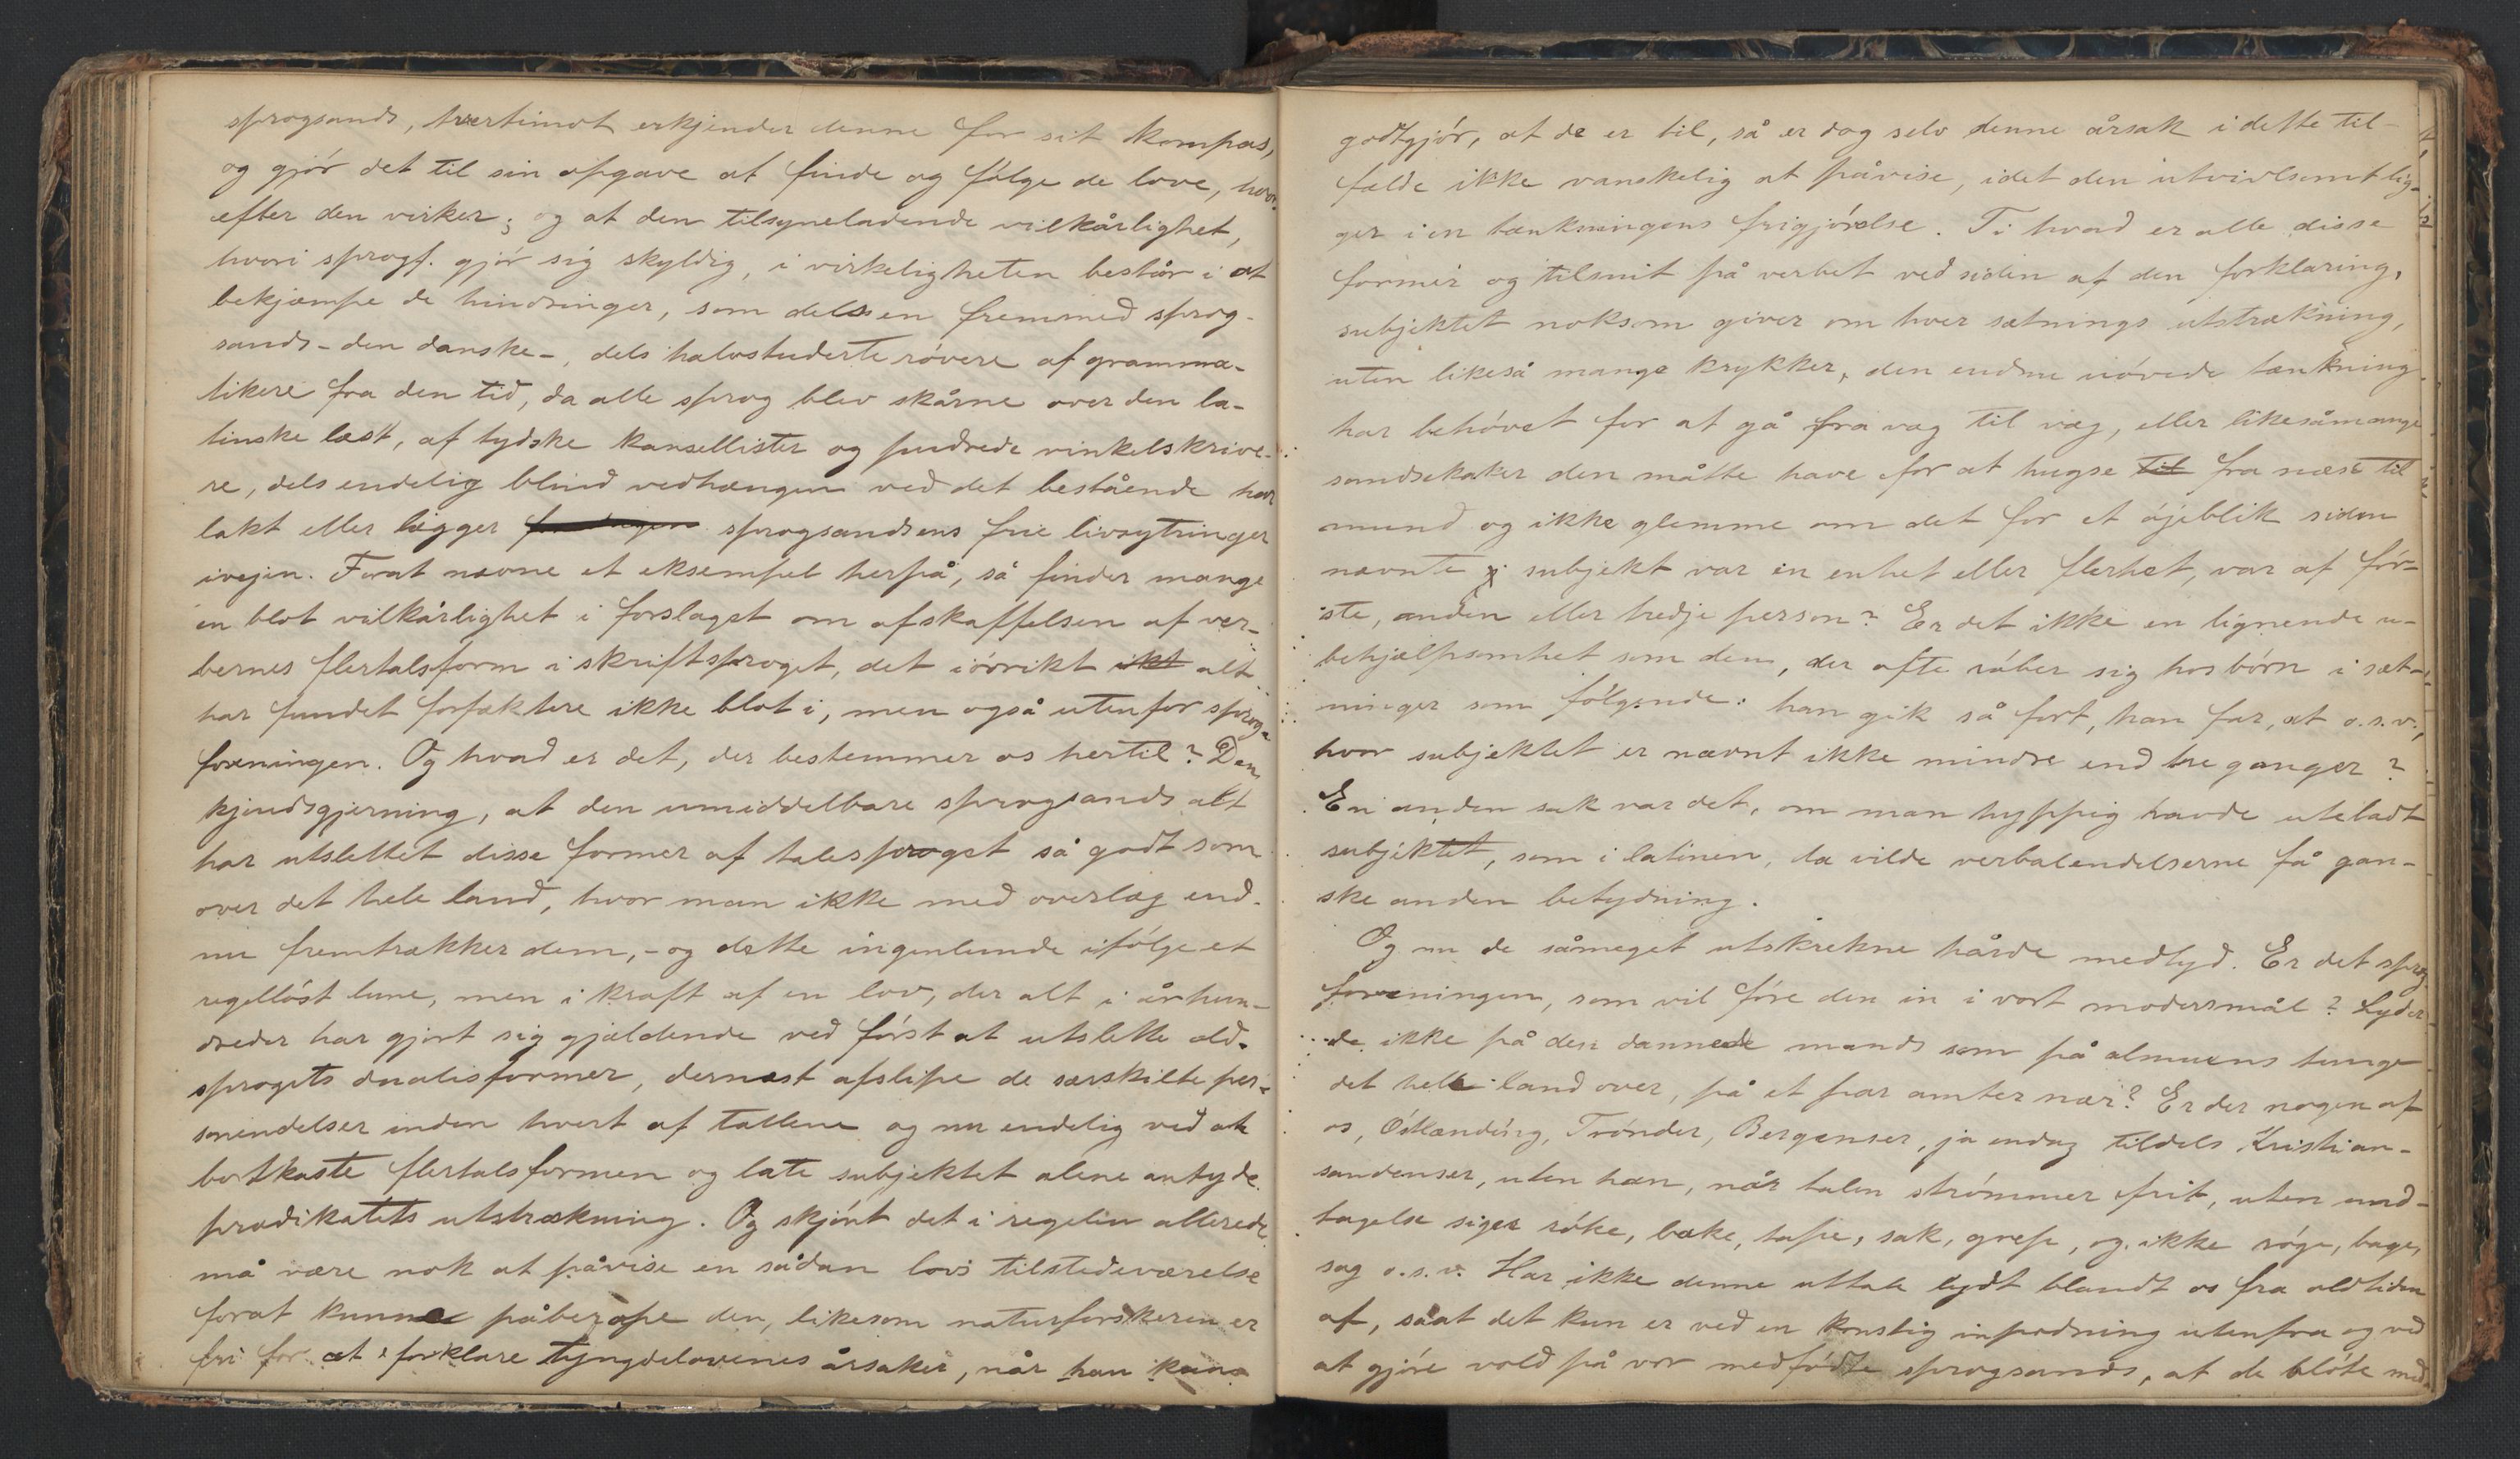 sprogsands, tvertimot erkjender denne for sit kompas,
og gjór det til sin opgave at finde og fólge de love, hvor-
efter den virker; og at den tilsyneladende vilkårlighet,
hvori sprogf. gjór sig skyldig, i virkeligheten består i at
bekjæmpe de hindringer, som dels en fremmed sprog-
sands – den danske –, dels halvstuderte róvere af gramma-
tikere fra den tid, da alle sprog blev skårne over den la-
tinske læst, af tydske kansellister og pudrede vinkelskrive-
re, dels endelig blind vedhængen ved det bestående har
lakt eller lægger sprogsandsens frie livsytringer
ivejen. Forat nævne et eksempel herpå, så finder mange
en blot vilkårlighet i forslaget om afskaffelsen af ver-
bernes flertalsform i skriftsproget, det ióvrikt ikt alt
har fundet forfæktere ikke blot i, men også utenfor sprog-
foreningen. Og hvad er det, der bestemmer os hertil? Den
kjendsgjerning, at den umiddelbare sprogsands alt
har utslettet disse former af talesproget så godt som
over det hele land, hvor man ikke med overlæg end-
nu fremtrækker dem, – og dette ingenlunde ifólge et
regellóst lune, men i kraft af en lov, der alt i århun-
dreder har gjort sig gjældende ved fórst at utslette old-
sprogets dualisformer, dernæst afslipe de særskilte per-
sonendelser inden hvert af tallene og nu endelig ved at
bortkaste flertalsformen og late subjektet alene antyde
prædikatets utstrækning. Og skjónt det i regelen allerede
må være nok at påvise en sådan lovs tilstedeværelse
forat kunne påberope den, likesom naturforskeren er
fri for at forklare tyngdelovenes årsaker, når han kan
godtgjór, at de er til, så er dog selv denne årsak i dette til-
fælde ikke vanskelig at påvise, idet den utvivlsomt lig-
ger i en tænkningens frigjórelse. Ti hvad er alle disse
former og tilsnit på verbet ved siden af den forklaring,
subjektet noksom giver om hver sætnings utstrækning,
uten likeså mange krykker, den endnu uóvede tænkning
har behóvet for at gå fra væg til væg, eller likesåmange
sandsekaker den måtte have for at hugse til fra næse til
mund og ikke glemme om det for et ójeblik siden
nævnte subjekt var en enhet eller flerhet, var af fór-
ste, anden eller tredje person? Er det ikke en lignende u-
behjælpsomhet som den, der ofte róber sig hos bórn i sæt-
ninger som fólgende: han gik så fort, han far, at o.s.v.,
hvor subjektet er nævnt ikke mindre end tre ganger?
En anden sak var det, om man hyppig havde uteladt
subjektet, som i latinen, da vilde verbalendelserne få gan-
ske anden betydning.
Og nu de såmeget utskrekne hårde medlyd. Er det sprog-
foreningen, som vil fóre den in i vort modersmål? Lyder
de ikke på den dannede mands som på almuens tunge
det hele land over, på et par amter nær? Er der nogen af
os, Óstlænding, Trónder, Bergenser, ja endog tildels Kristian-
sandenser, uten han, når talen strómmer frit, uten und-
tagelse siger róke, bake, tape, sak, grepe, og ikke róge, bage,
sag o.s.v. Har ikke denne uttale lydt blandt os fra oldtiden
af, såat det kun er ved en kunstig inpodning utenfra og ved
at gjóre vold på vor medfódte sprogsands, at de blóte med-